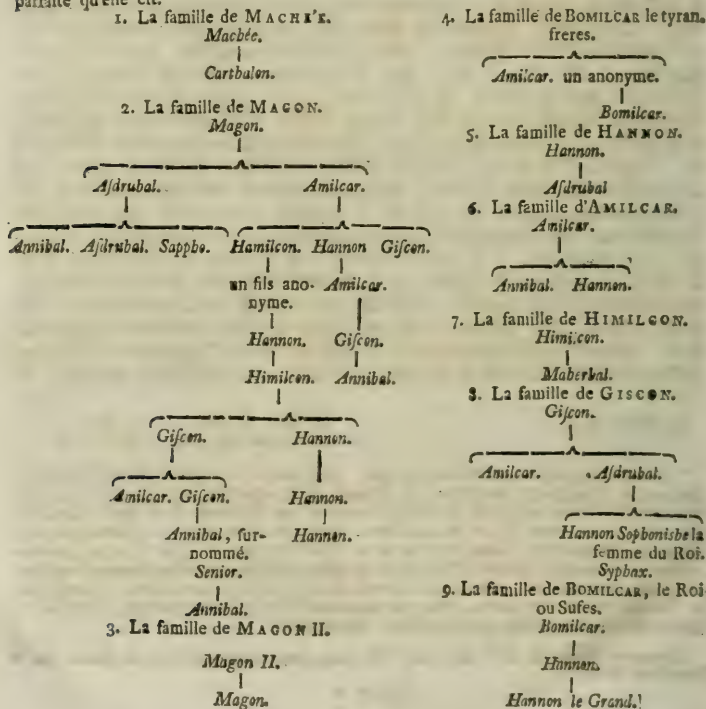 parfaite qu'elle est.
1. La famille de MACHÉE.
Machée.
Carthalon.
2. La famille de MAGON.
Magon.
Aſdrubal. Amilcar.
Annibal. Aſdrubal. Sappho. Hamilcon. Hannon Giſcon.
un fils ano- Amilcar.
nyme.
Hannon. Giſcon.
Himilcon. Annibal.
Giſcon. Hannon.
Amilcar. Giſcon. Hannon.
Annibal, fur- Hannon.
nommé.
Senior.
Annibal.
3. La famille de MAGON II.
Magon II.
Magon.
4. La famille de BOMILCAR le tyran.
freres.
Amilcar. un anonyme.
Bomilcar.
5. La famille de HANNON.
Hannon.
Aſdrubal
6. La famille d'AMILCAR.
Amilcar.
Annibal. Hannon.
7. La famille de HIMILCON.
Himilcon.
Maherbal.
8. La famille de GISCON.
Giſcon.
Amilcar. Aſdrubal.
Hannon Sophonisbe la
femme du Roi.
Syphax.
9. La famille de BOMILCAR, le Roi
ou Sufes.
Bomilcar.
Hannon.
Hannon le Grand.